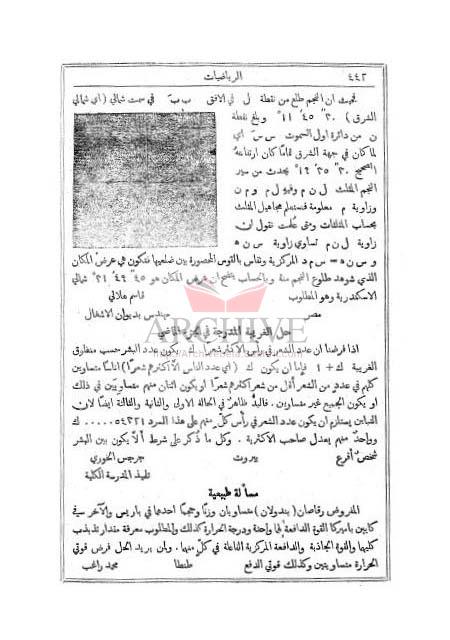 ٤٤٢ الرياضيات
فحيث ان النجم طلع من نقطة ل في الافق ب بَ في سمت شمالي (اي شمالي
الشرق) ٣٠ً ٤٥َ ١١° وبلغ نقطة
ن من دائرة اول السموت س سَ اي
لما كان في جهة الشرق تمامًا كان ارتفاعهُ
الصحيح ٣٠ً ٢٥َ ١٤° يحدث من سير
النجم المثلث ل ن م وفيهِ ل م و م ن
وزاوية م معلومة فنستعلم مجاهيل المثلث
بحساب المثلثات ومتى عُلمت نقول ان
زاوية ل ن م تساوي زاوية س ن ه
و س ن ه = س د المركزية وتقاس بالقوس المحصورة بين ضلعيها فتكون هي عرض المكان
الذي شوهد طلوع النجم منهُ وبالحساب يتضح ان عرض المكان هو ٤٥ً ٤٩َ ٣١° شمالي
الاسكندرية وهو المطلوب قاسم هلالي
مصر مهندس بديوان الاشغال
حل الغريبة المدرجة في الجزء الماضي
ARCHIVE
اذا فرضنا ان عدد الشعر في راس الاكثر شعرًا ك يكون عدد البشر حسب منطوق
الغريبة ك + ١ فإما ان يكون ك (اي عدد الناس الأكثرهم شعرًا) اناسًا متساوين
كلهم في عددٍ من الشعر أقل من شعر اكثرهم شعرًا او يكون اثنان منهم متساويين في ذلك
او يكون الجميع غير متساوين. فالبدُّ ظاهرٌ في الحالة الاولى والثانية والثالثة ايضًا لان
التباين يستلزم ان يكون عدد الشعر في رأس كلٍّ منهم على هذا السرد ٥٤٣٢١...... ك
وواحدٌ منهم يعدل صاحب الاكثرية. وكل ما ذُكر على شرط ألاَّ يكون بين البشر
شخصٌ أقرع بيروت جرجس الخوري
تلميذ المدرسة الكلية
مسألة طبيعية
المفروض رقاصان (بندولان) متساويان وزنًا وحجمًا احدهما في باريس والآخر في
كايين باميركا القوة الدافعة لهما واحدة ودرجة الحرارة كذلك والمطلوب معرفة مقدار تذبذب
كليهما والقوة الجاذبة والدافعة المركزية الفاعلة في كلٍّ منهما. ولمن يريد الحل فرض قوتي
الحرارة متساويتين وكذلك قوتي الدفع طنطا محمد راغب